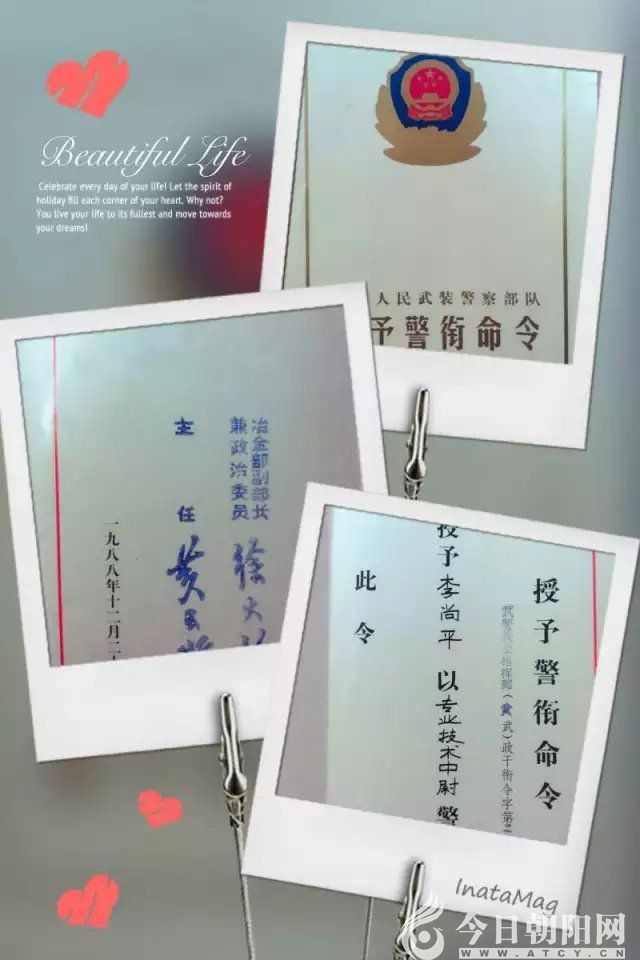 Beautiful Life
Celebrate every day of your life! Let the spirit of
holiday fill each corner of your heart. Why not?
You live your life to its fullest and move towards
your dreams!
人民武装警察部队
予警衔命令
冶金部副部长
兼政治委员
主任
一九八八年十二月二
授予警衔命令
武)政干衔令字第
授予李尚平以专业技术中尉警
此令
InstaMag
今日朝阳网
WWW.ATCY.CN